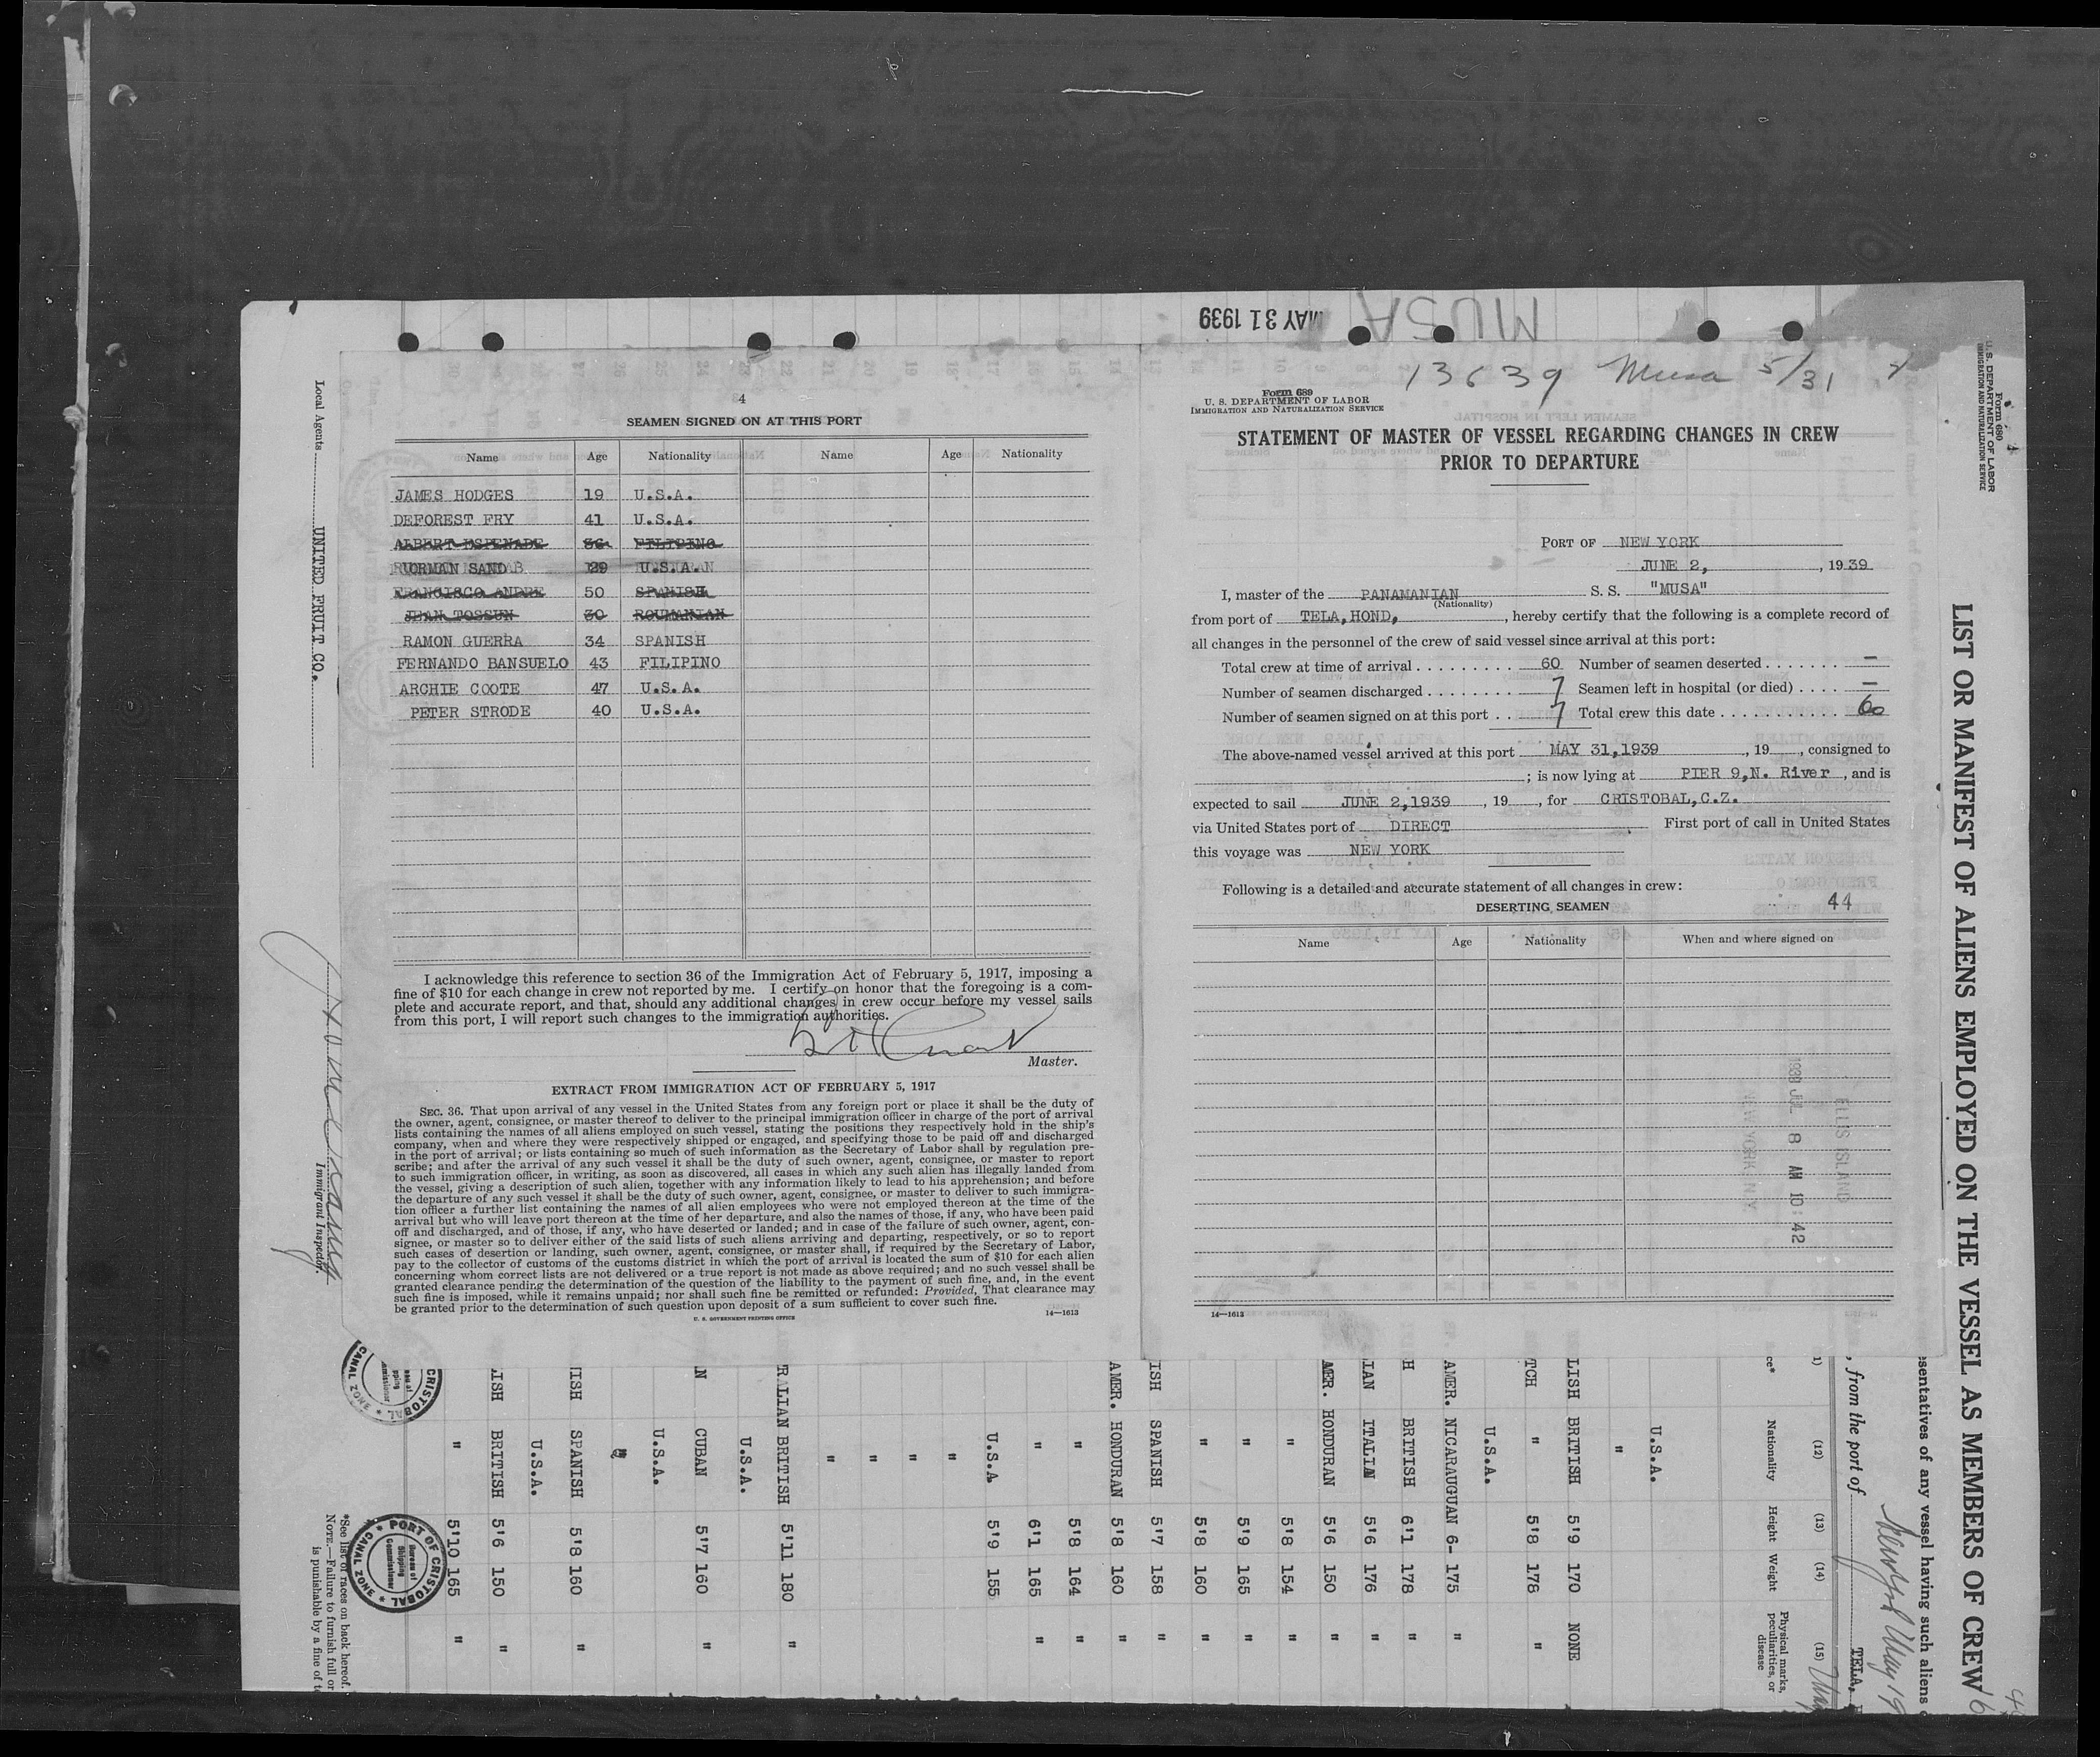 MAY 31 1939
MUSA
13639 Musa 5/31
4
SEAMEN SIGNED ON AT THIS PORT
Name Age Nationality Name Age Nationality
JAMES HODGES 19 U.S.A.
DEFOREST FRY 41 U.S.A.
ALBERT ESPENADE 36 FILIPINO
SAND 29 U.S.A.
FRANCISCO ANDRE 50 SPANISH
JEAN TOSSUN 30 ROUMANIAN
RAMON GUERRA 34 SPANISH
FERNANDO BANSUELO 43 FILIPINO
ARCHIE COOTE 47 U.S.A.
PETER STRODE 40 U.S.A.
I acknowledge this reference to section 36 of the Immigration Act of February 5, 1917, imposing a
fine of $10 for each change in crew not reported by me. I certify on honor that the foregoing is a com-
plete and accurate report, and that, should any additional changes in crew occur before my vessel sails
from this port, I will report such changes to the immigration authorities.
Master.
EXTRACT FROM IMMIGRATION ACT OF FEBRUARY 5, 1917
SEC. 36. That upon arrival of any vessel in the United States from any foreign port or place it shall be the duty of
the owner, agent, consignee, or master thereof to deliver to the principal immigration officer in charge of the port of arrival
lists containing the names of all aliens employed on such vessel, stating the positions they respectively hold in the ship's
company, when and where they were respectively shipped or engaged, and specifying those to be paid off and discharged
in the port of arrival; or lists containing so much of such information as the Secretary of Labor shall by regulation pre-
scribe; and after the arrival of any such vessel it shall be the duty of such owner, agent, consignee, or master to report
to such immigration officer, in writing, as soon as discovered, all cases in which any such alien has illegally landed from
the vessel, giving a description of such alien, together with any information likely to lead to his apprehension; and before
the departure of any such vessel it shall be the duty of such owner, agent, consignee, or master to deliver to such immigra-
tion officer a further list containing the names of all alien employees who were not employed thereon at the time of the
arrival but who will leave port thereon at the time of her departure, and also the names of those, if any, who have been paid
off and discharged, and of those, if any, who have deserted or landed; and in case of the failure of such owner, agent, con-
signee, or master so to deliver either of the said lists of such aliens arriving and departing, respectively, or so to report
such cases of desertion or landing, such owner, agent, consignee, or master shall, if required by the Secretary of Labor,
pay to the collector of customs of the customs district in which the port of arrival is located the sum of $10 for each alien
concerning whom correct lists are not delivered or a true report is not made as above required; and no such vessel shall be
granted clearance pending the determination of the question of the liability to the payment of such fine, and, in the event
such fine is imposed, while it remains unpaid; nor shall such fine be remitted or refunded: Provided, That clearance may
be granted prior to the determination of such question upon deposit of a sum sufficient to cover such fine.
U. S. GOVERNMENT PRINTING OFFICE 14—1613
Form 689
U. S. DEPARTMENT OF LABOR
IMMIGRATION AND NATURALIZATION SERVICE
STATEMENT OF MASTER OF VESSEL REGARDING CHANGES IN CREW
PRIOR TO DEPARTURE
PORT OF NEW YORK
JUNE 2, , 1939
I, master of the PANAMANIAN S. S. "MUSA"
(Nationality)
from port of TELA, HOND, , hereby certify that the following is a complete record of
all changes in the personnel of the crew of said vessel since arrival at this port:
Total crew at time of arrival 60 Number of seamen deserted —
Number of seamen discharged 7 Seamen left in hospital (or died) —
Number of seamen signed on at this port 7 Total crew this date 60
The above-named vessel arrived at this port MAY 31,1939 , 19 , consigned to
; is now lying at PIER 9,N. River , and is
expected to sail JUNE 2,1939 , 19 , for CRISTOBAL,C.Z.
via United States port of DIRECT First port of call in United States
this voyage was NEW YORK
Following is a detailed and accurate statement of all changes in crew:
DESERTING SEAMEN 44
Name Age Nationality When and where signed on
ELLIS ISLAND
1939 JUL 8 AM 10:42
NEW YORK N.Y.
14—1613
Local Agents UNITED FRUIT CO.
Immigrant Inspector.
Form 680
U. S. DEPARTMENT OF LABOR
IMMIGRATION AND NATURALIZATION SERVICE
LIST OR MANIFEST OF ALIENS EMPLOYED ON THE VESSEL AS MEMBERS OF CREW
esentatives of any vessel having such aliens
, from the port of TELA,
(12) (13) (14) (15)
Nationality Height Weight Physical marks, peculiarities, or disease
U.S.A.
"
LISH BRITISH 5'9 170 NONE
TCH " 5'8 178 "
U.S.A.
AMER. NICARAUGUAN 6- 175 "
H BRITISH 6'1 178 "
IAN ITALIN 5'6 176 "
AMER. HONDURAN 5'6 150 "
" 5'8 154 "
" 5'9 165 "
" 5'8 160 "
ISH SPANISH 5'7 158 "
AMER. HONDURAN 5'8 160 "
" 5'8 164 "
" 6'1 165 "
U.S.A 5'9 155
"
"
"
"
RALIAN BRITISH 5'11 180 "
U.S.A.
N CUBAN 5'7 160 "
U.S.A.
"
ISH SPANISH 5'8 160 "
U.S.A.
LISH BRITISH 5'6 150 "
" 5'10 165 "
PORT OF CRISTOBAL
CANAL ZONE
Bureau of
Shipping
Commissioner
CRISTOBAL
CANAL ZONE
*See list of races on back hereof.
NOTE.—Failure to furnish full or
is punishable by a fine of